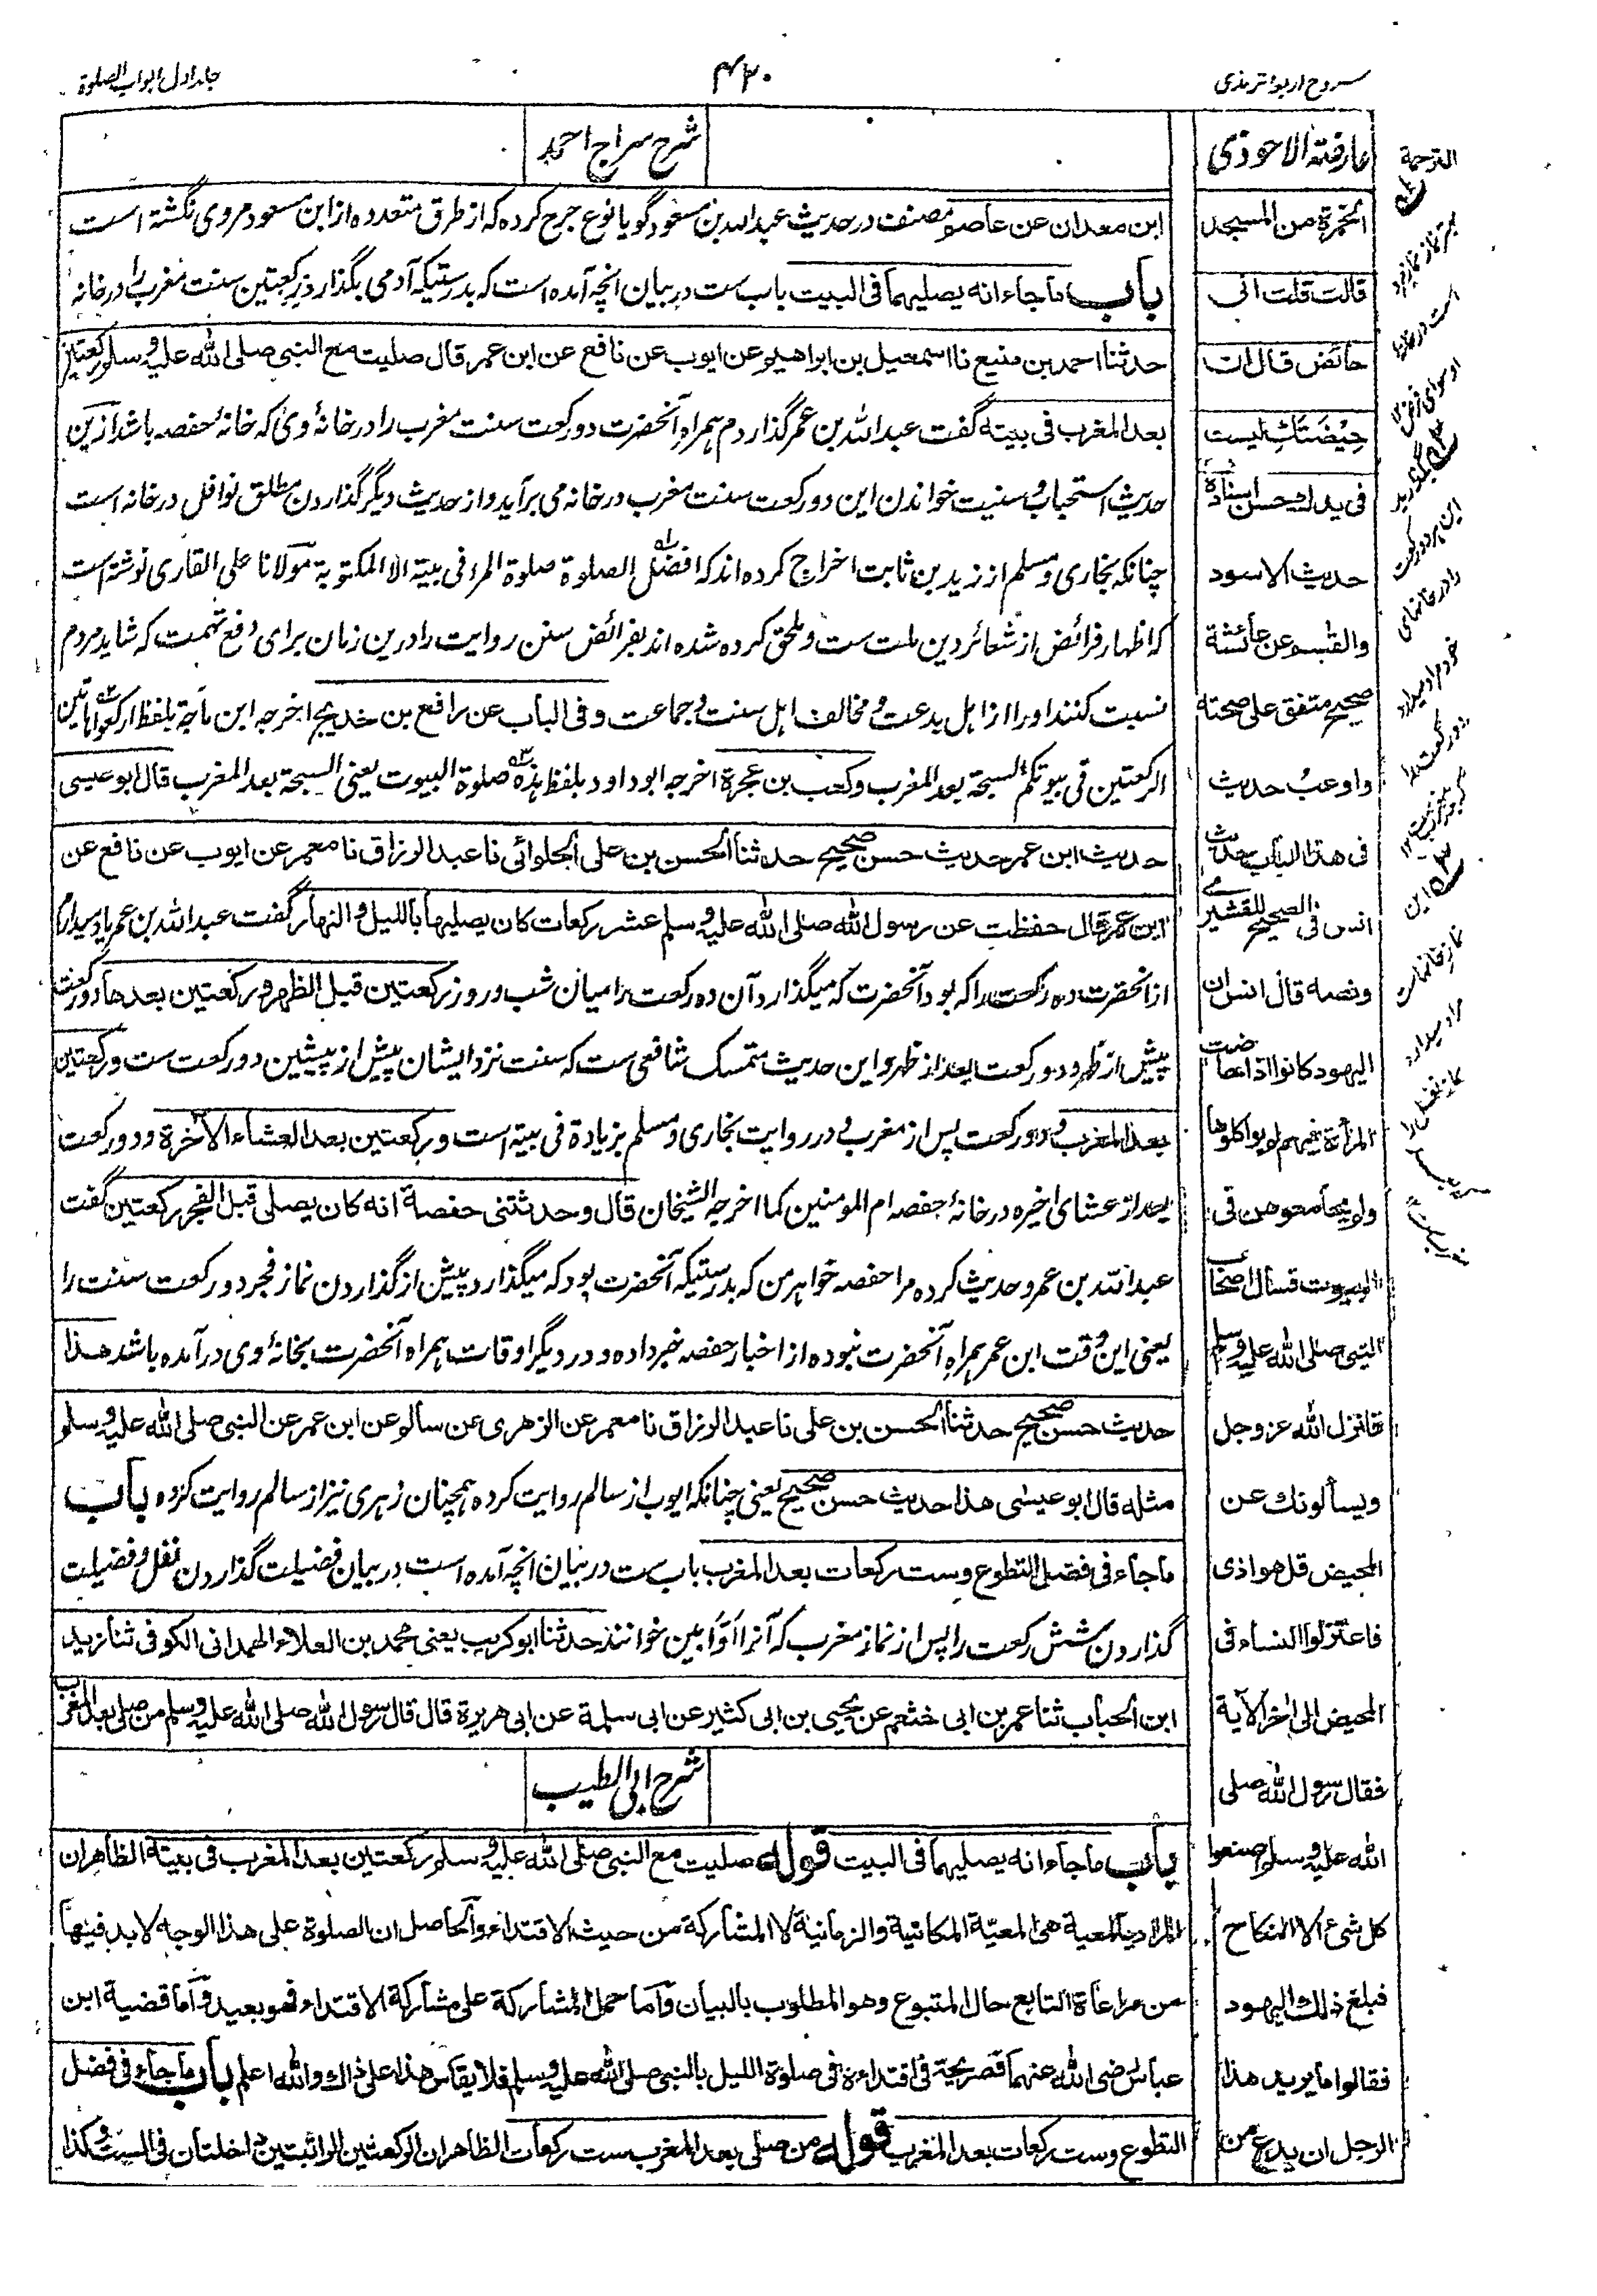 شروح اربعۂ ترمذی
۴۲۰
جلد اول ابواب الصلوة
شرح سراج احمد
ابن معدان عن عاصم مصنف در حدیث عبدالله بن مسعود گویا نوع جرح کرده که از طرق متعدده از ابن مسعود مروی نگشته است
باب ما جاء انه یصلیهما فی البیت باب ست در بیان انچه آمده است که بدرستیکه آدمی بگذارد رکعتین سنت مغرب را در خانه
حدثنا احمد بن منیع نا اسمعیل بن ابراهیم عن ایوب عن نافع عن ابن عمر قال صلیت مع النبی صلی الله علیه وسلم رکعتین
بعد المغرب فی بیته گفت عبدالله بن عمر گذاردم همراه آنحضرت دو رکعت سنت مغرب را در خانۂ وی که خانۂ حفصه باشد ازین
حدیث استحباب و سنیت خواندن این دو رکعت سنت مغرب در خانه می برآید و از حدیث دیگر گذاردن مطلق نوافل در خانه است
چنانکه بخاری و مسلم از زید بن ثابت اخراج کرده اند که افضل الصلوة صلوة المرء فی بیته الا المکتوبة مولانا علی القاری نوشته است
که اظهار فرائض از شعائر دین ملت ست و ملحق کرده شده اند بفرائض سنن روایت را درین زمان برای دفع تهمت که شاید مردم
نسبت کنند او را از اهل بدعت و مخالف اهل سنت و جماعت و فی الباب عن رافع بن خدیج اخرجه ابن ماجة بلفظ ارکعوا هاتین
الرکعتین فی بیوتکم السبحة بعد المغرب و کعب بن عجرة اخرجه ابو داود بلفظ هذه صلوة البیوت یعنی السبحة بعد المغرب قال ابو عیسی
حدیث ابن عمر حدیث حسن صحیح حدثنا الحسن بن علی الحلوانی نا عبد الرزاق نا معمر عن ایوب عن نافع عن
ابن عمر قال حفظت عن رسول الله صلی الله علیه وسلم عشر رکعات کان یصلیها باللیل والنهار گفت عبدالله بن عمر یاد میدارم
از آنحضرت ده رکعت را که بود آنحضرت که میگذارد آن ده رکعت را میان شب و روز رکعتین قبل الظهر و رکعتین بعدها دو رکعت
پیش از ظهر و دو رکعت بعد از ظهر و این حدیث متمسک شافعی ست که سنت نزد ایشان پیش از پیشین دو رکعت ست و رکعتین
بعد المغرب و دو رکعت پس از مغرب و در روایت بخاری و مسلم بزیادة فی بیته است و رکعتین بعد العشاء الآخرة و دو رکعت
بعد از عشای اخیره در خانۂ حفصه ام المومنین کما اخرجه الشیخان قال و حدثتنی حفصة انه کان یصلی قبل الفجر رکعتین گفت
عبدالله بن عمر و حدیث کرده مرا حفصه خواهر من که بدرستیکه آنحضرت بود که میگذارد پیش از گذاردن نماز فجر دو رکعت سنت را
یعنی این وقت ابن عمر همراه آنحضرت نبوده از اخبار حفصه خبر داده و در دیگر اوقات همراه آنحضرت بخانۂ وی درآمده باشد هذا
حدیث حسن صحیح حدثنا الحسن بن علی نا عبد الرزاق نا معمر عن الزهری عن سالم عن ابن عمر عن النبی صلی الله علیه وسلم
مثله قال ابو عیسی هذا حدیث حسن صحیح یعنی چنانکه ایوب از سالم روایت کرده همچنان زهری نیز از سالم روایت کرده باب
ما جاء فی فضل التطوع و ست رکعات بعد المغرب باب ست در بیان انچه آمده است در بیان فضیلت گذاردن نفل و فضیلت
گذاردن شش رکعت را پس از نماز مغرب که آنرا اوّابین خوانند حدثنا ابو کریب یعنی محمد بن العلاء الهمدانی الکوفی ثنا زید
ابن الحباب ثنا عمر بن ابی خثعم عن یحیی بن ابی کثیر عن ابی سلمة عن ابی هریرة قال قال رسول الله صلی الله علیه وسلم من صلی بعد المغرب
شرح ابی الطیب
باب ما جاء انه یصلیهما فی البیت قوله صلیت مع النبی صلی الله علیه وسلم رکعتین بعد المغرب فی بیته الظاهر ان
المراد بالمعیة هی المعیّة المکانیة والزمانیة لا المشارکة من حیث الاقتداء والحاصل ان الصلوة علی هذا الوجه لا بد فیها
من مراعاة التابع حال المتبوع وهو المطلوب بالبیان واما حمل المشارکة علی مشارکة الاقتداء فهو بعید واما قضیة ابن
عباس رضی الله عنهما فصریحة فی اقتداءه فی صلوة اللیل بالنبی صلی الله علیه وسلم فلا یقاس هذا علی ذاك والله اعلم باب ما جاء فی فضل
التطوع وست رکعات بعد المغرب قوله من صلی بعد المغرب ست رکعات الظاهر ان الرکعتین الراتبتین داخلتان فی الست وکذا
عارضة الاحوذی
الخمرة من المسجد
قالت قلت انی
حائض قال ان
حیضتك لیست
فی یدك حسن اسناده
حدیث الاسود
والقاسم عن عائشة
صحیح متفق علی صحته
واوعب حدیث
فی هذا الباب حدیث
انس فی الصحیح للقشیری
ونصه قال انس ان
الیهود کانوا اذا حاضت
المرأة فیهم لم یواکلوها
ولم یجامعوهن فی
البیوت فسأل اصحاب
النبی صلی الله علیه وسلم
فانزل الله عز وجل
ویسألونك عن
المحیض قل هو اذی
فاعتزلوا النساء فی
المحیض الی اخر الآیة
فقال رسول الله صلی
الله علیه وسلم اصنعوا
کل شئ الا النکاح
فبلغ ذلك الیهود
فقالوا ما یرید هذا
الرجل ان یدع من
الترجمة
است در خانه
این هر دو رکعت
را در خانهای
خود مراد میدارد
این
مراد میدارد